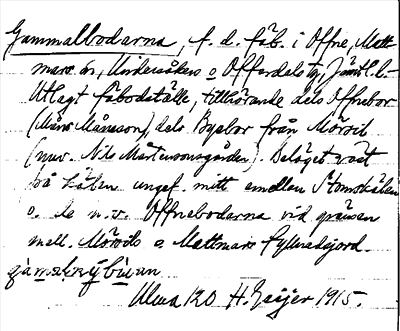 Gammalbodarna, f. d. fäb. i Offne, Matt-
mars sn, Undersåkers o Offerdals tg, Jämtl. l.
Utlagt fäboställe, tillhörande dels Offnebor
(Måns Månsson), dels Byelor från Mörsil
(nuv. Nils Mårtensonsgården). Beläget väst
på Kälen ungef. mitt emellan Stomskälen
o. de n.v. Offnebodarna vid gränsen
mell. Mörsils o Mattmars fjällvedsjord.
Ulma 120 H. Geijer 1915.